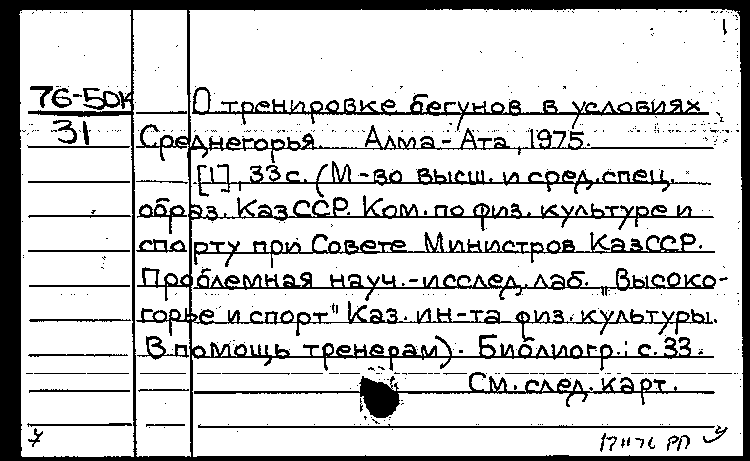 76-50к О тренировке бегунов в условиях
31 Среднегорья. Алма-Ата, 1975.
[1], 33 с. (М-во высш. и сред. спец.
образ. КазССР. Ком. по физ. культуре и
спорту при Совете Министров КазССР.
Проблемная науч.-исслед. лаб. „Высоко-
горье и спорт" Каз. ин-та физ. культуры.
В помощь тренерам). Библиогр.: с. 33.
См. след. карт.